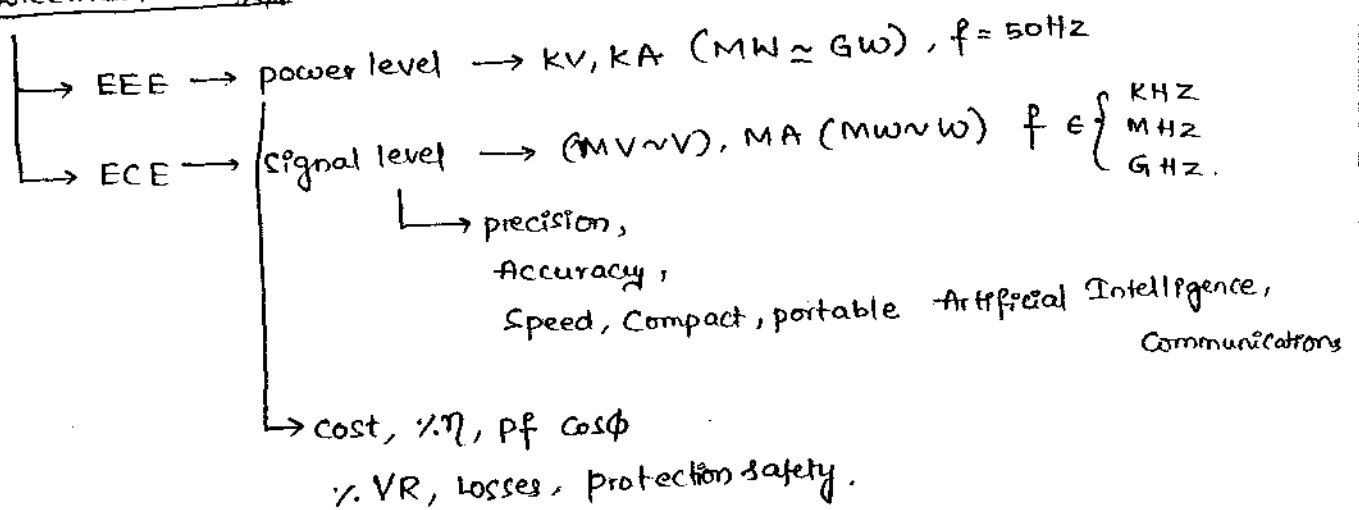 EEE → power level → KV, KA (MW ≃ GW), f = 50HZ
ECE → signal level → (MV~V), MA (MW~W) f ∈ { KHZ
MHZ
GHZ.
precision,
Accuracy,
Speed, Compact, portable Artificial Intelligence,
Communications
→ cost, %η, Pf cosϕ
%. VR, Losses, protection safety.